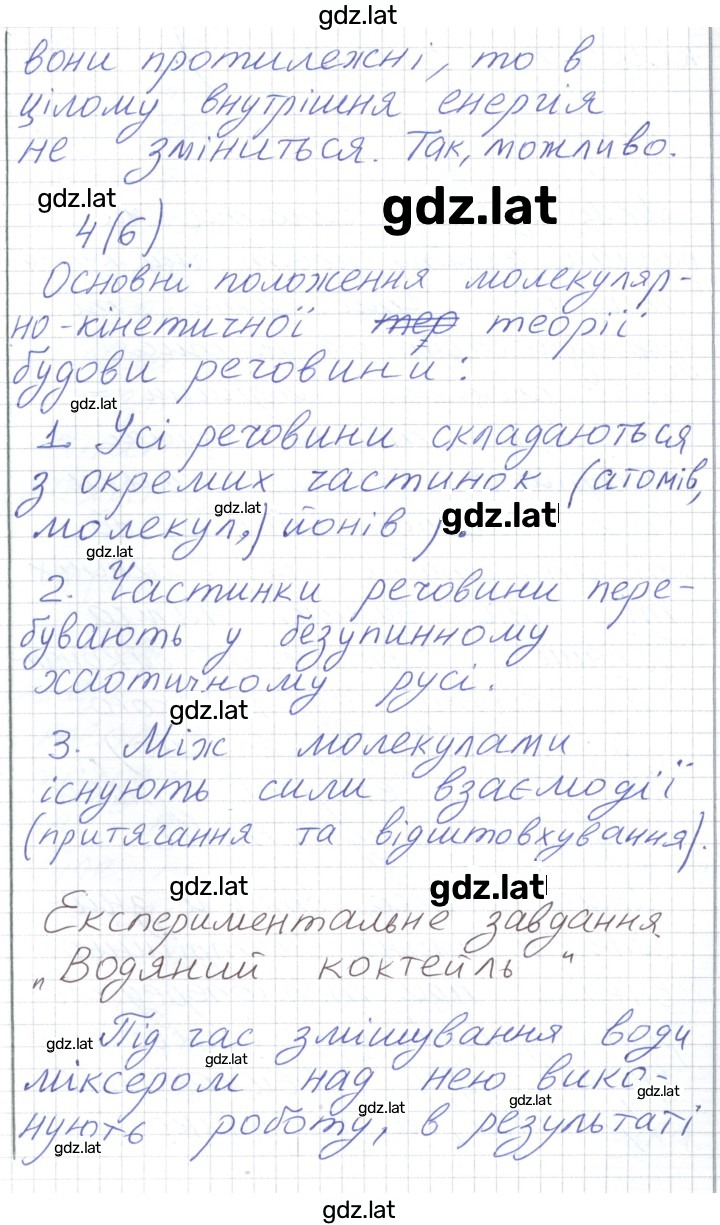 gdz.lat
вони протилежні, то в
цілому внутрішня енергія
не зміниться. Так, можливо.
gdz.lat
gdz.lat
4(6)
Основні положення молекуляр-
но-кінетичної тер теорії
будови речовини:
gdz.lat
1. Усі речовини складаються
з окремих частинок (атомів,
gdz.lat
gdz.lat
молекул,) йонів ).
gdz.lat
2. Частинки речовини пере-
бувають у безупинному
хаотичному русі.
gdz.lat
3. Між молекулами
існують сили взаємодії
(притягання та відштовхування).
gdz.lat
gdz.lat
Експериментальне завдання.
„Водяний коктейль"
Під час змішування води
gdz.lat
gdz.lat
міксером над нею вико-
gdz.lat
gdz.lat
gdz.lat
нують роботу, в результаті
gdz.lat
gdz.lat